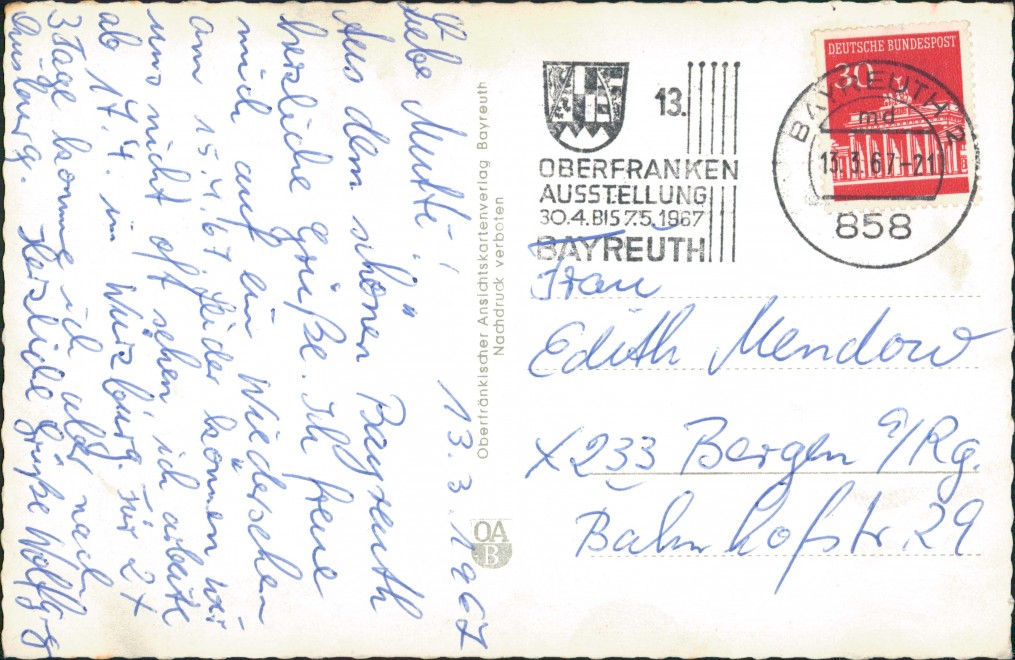 13. 3. 1967
Liebe Mutti!
Aus dem schönen Bayreuth
herzliche Grüße. Ich freue
mich auf ein Wiedersehen
am 15.4.67 leider können wir
uns nicht oft sehen ich arbeite
ab 17.4. in Würzburg. Für 2x
3 Tage komme ich aber nach
Herzliche Grüße
Oberfränkischer Ansichtskartenverlag Bayreuth
Nachdruck verboten
OA
B
13.
OBERFRANKEN
AUSSTELLUNG
30.4.BIS 7.5.1967
BAYREUTH
DEUTSCHE BUNDESPOST
30
BAYREUTH 2
md
13.3.67-21
858
Frau
Edith Mendow
X233 Bergen a/Rg.
Bahnhofstr. 29